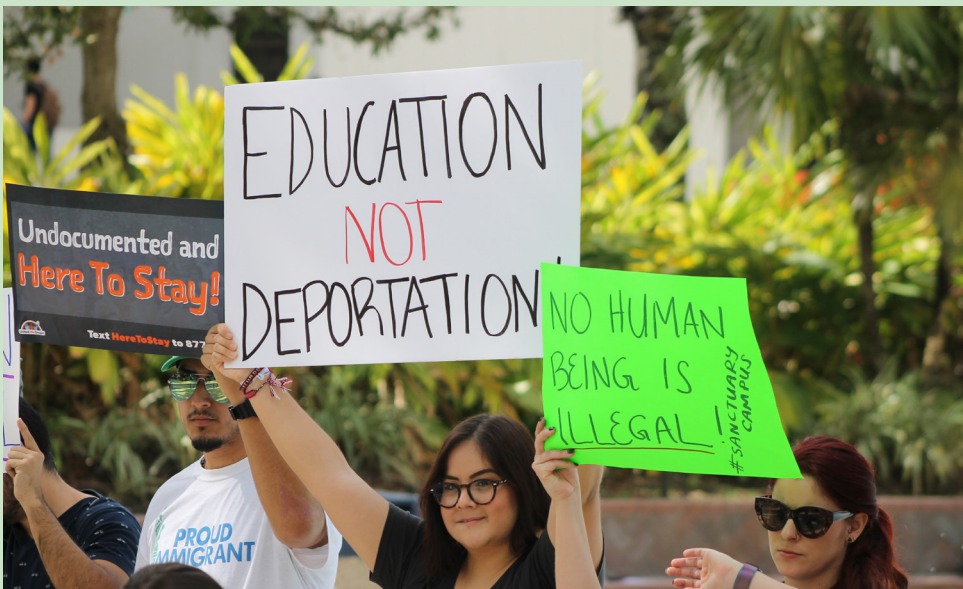 Undocumented and
Here To Stay!
Text HereToStay to 877
EDUCATION
NOT
DEPORTATION!
NO HUMAN
BEING IS
ILLEGAL!
#SANCTUARY
CAMPUS
PROUD
IMMIGRANT